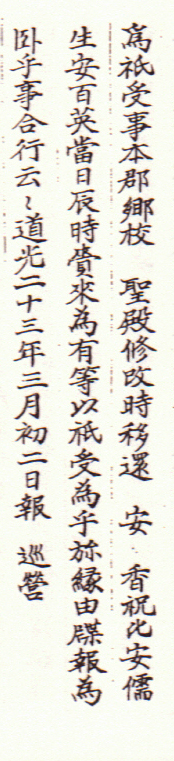 爲祗受事本郡鄕校 聖殿修改時移還 安 香祝叱安儒
生安百英當日辰時賷來為有等以祗受為乎旀緣由牒報為
卧乎事合行云〻道光二十三年三月初二日報 巡營